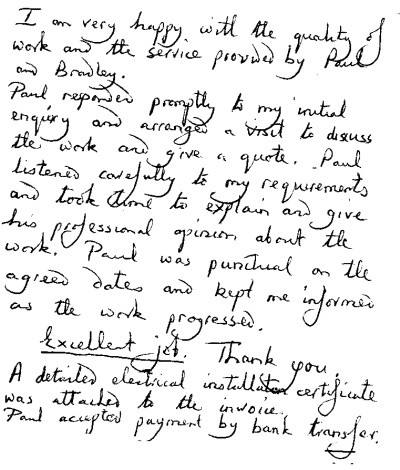 I am very happy with the quality of
work and the service provided by Paul
and Bradley.
Paul reponded promptly to my initial
enquiry and arranged a visit to discuss
the work and give a quote. Paul
listened carefully to my requirements
and took time to explain and give
his professional opinion about the
work. Paul was punctual on the
agreed dates and kept me informed
as the work progressed.
Excellent job. Thank you.
A detailed electrical installaton certificate
was attached to the invoice.
Paul accepted payment by bank transfer.